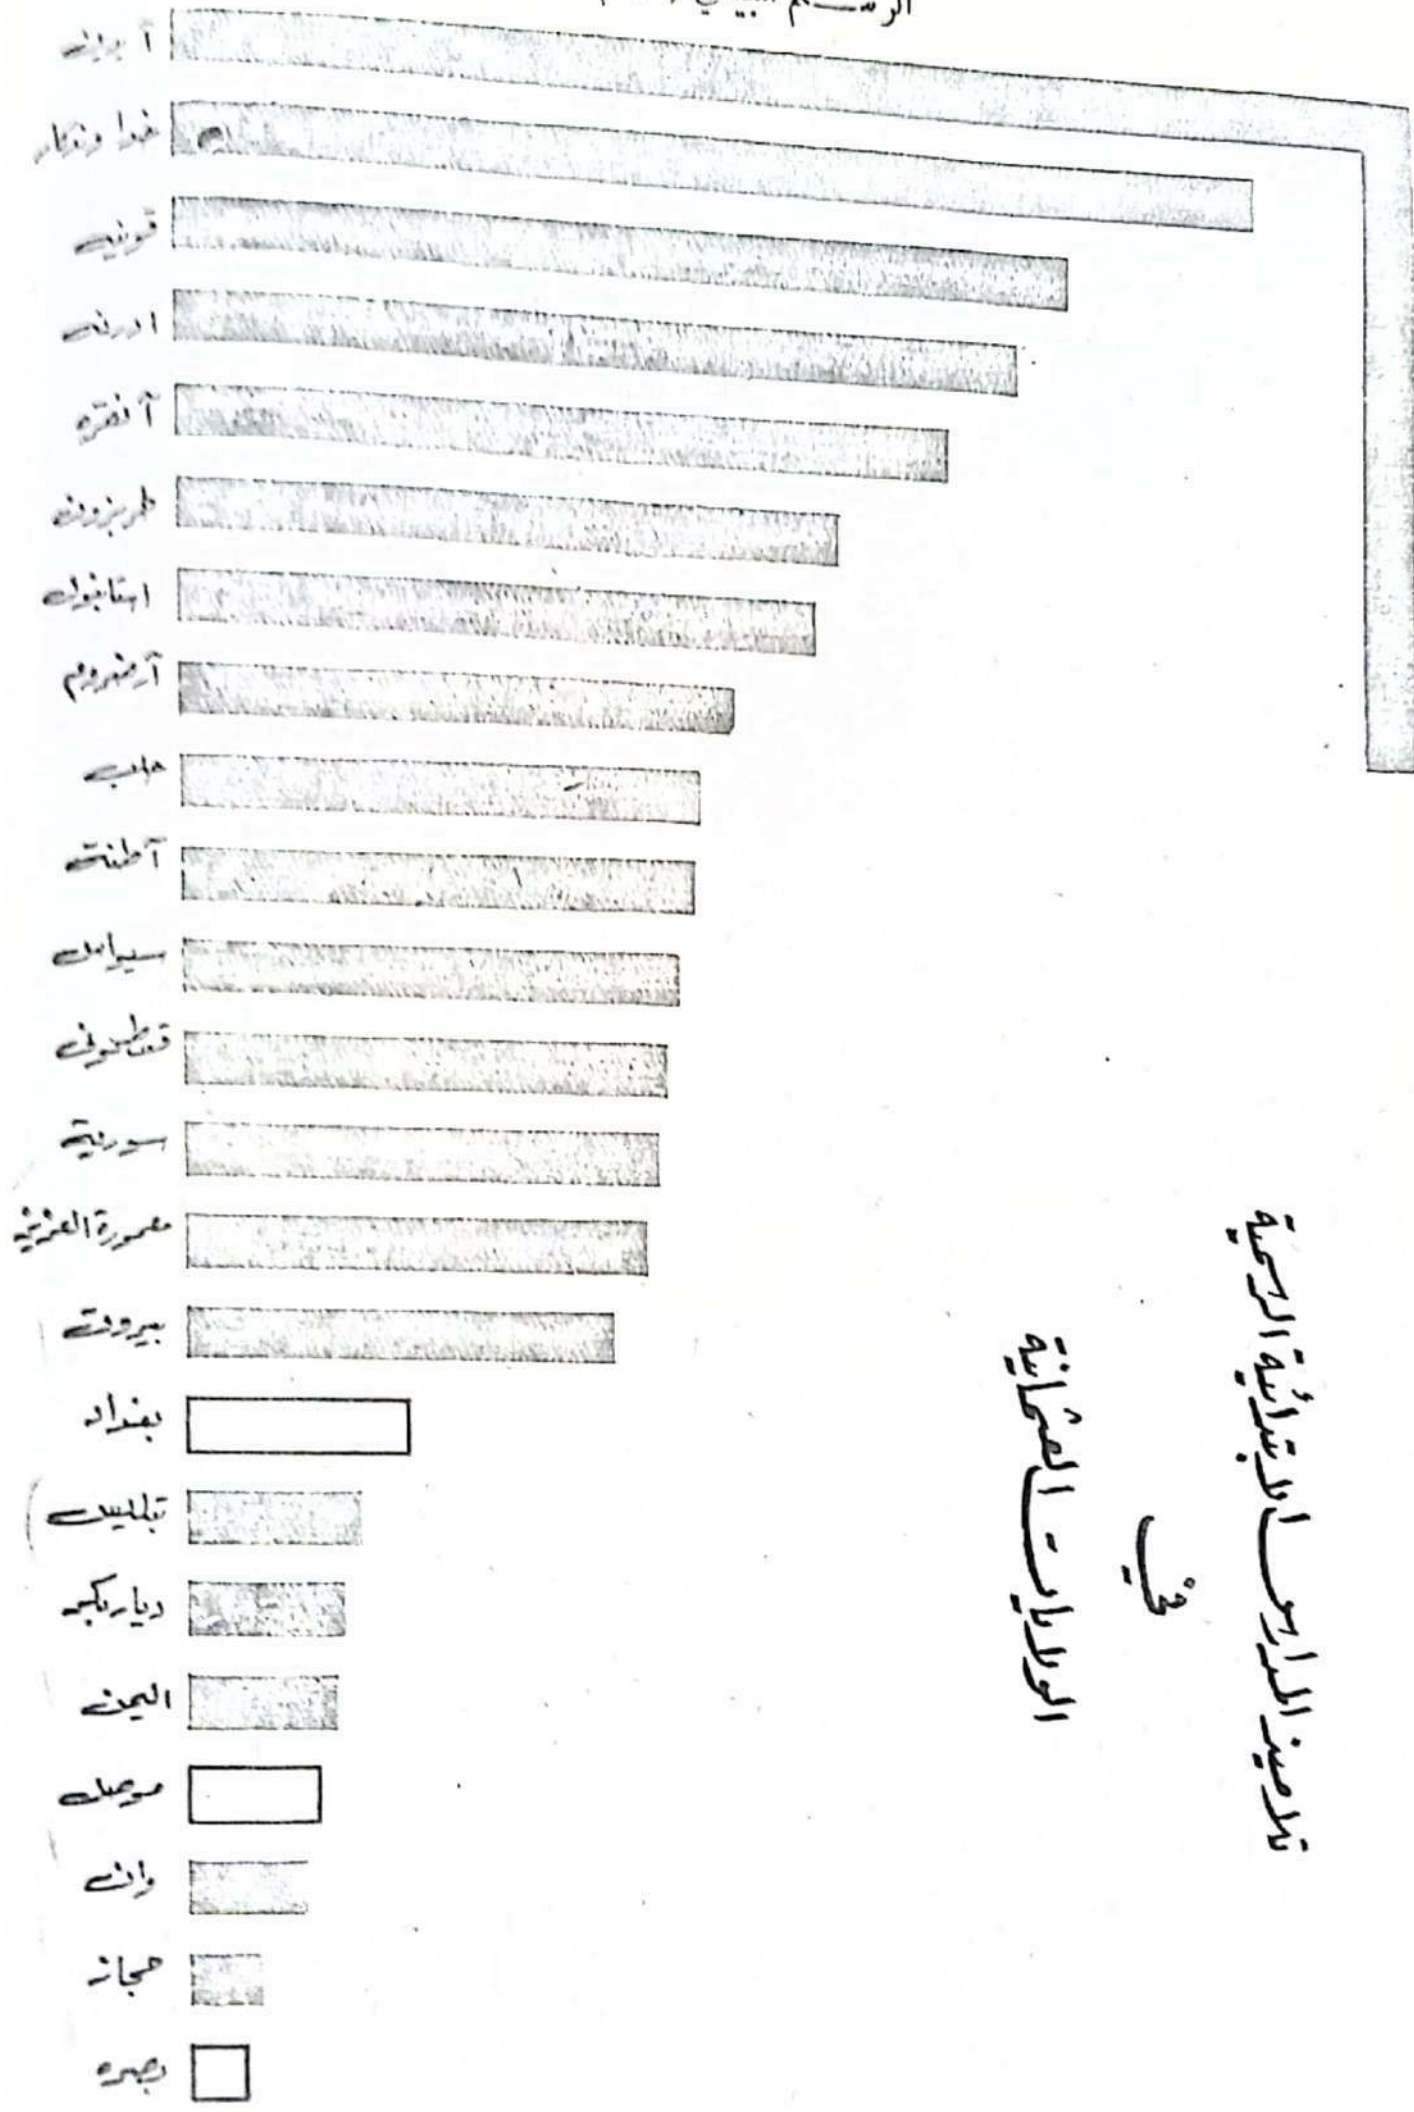 آيدين
خداوندكار
قونيه
ادرنه
آنقره
طربزون
استانبول
آرضروم
حلب
آطنة
سيواس
قسطموني
سورية
معمورة العزيز
بيروت
بغداد
تبليس
دياربكر
اليمن
موصل
وان
حجاز
بصره
تلاميذ المدارس الابتدائية الرسمية
في
الولايات العثمانية